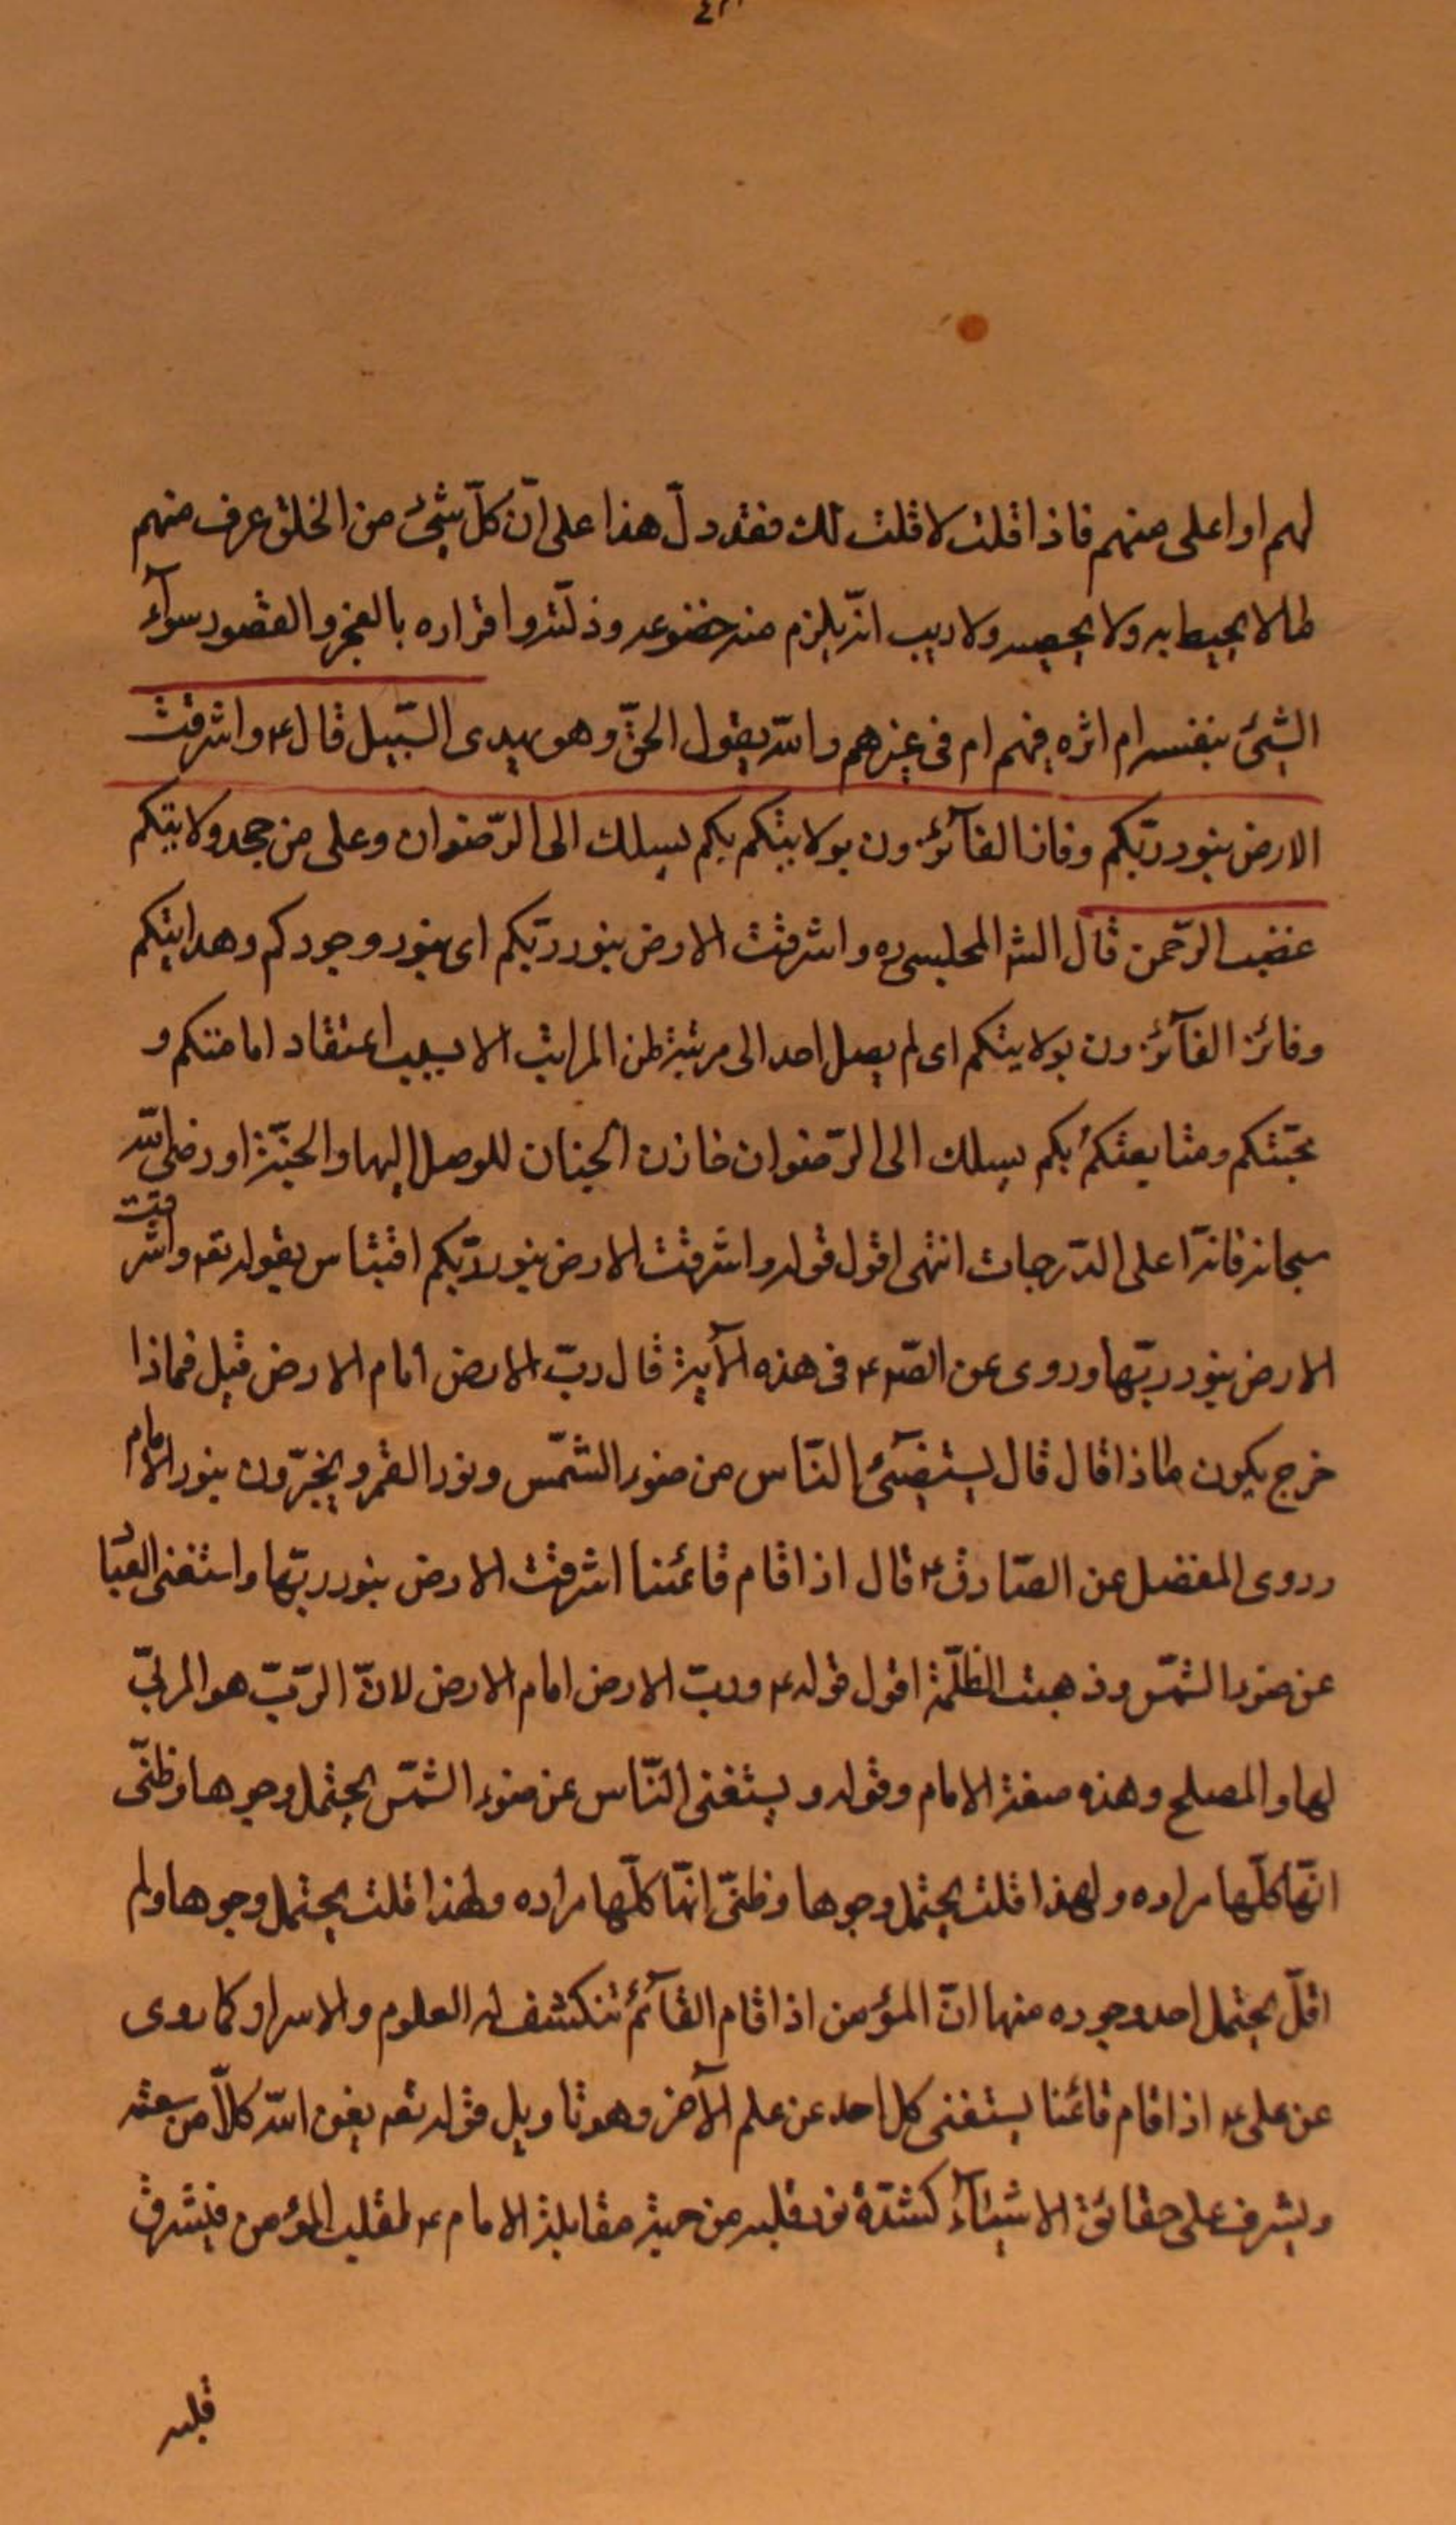 لهم او اعلى منهم فاذا قلت لا قلت لك فقد دلّ هذا على انّ كلّ شئ من الخلق عرف منهم
ما لا يحيط به ولا يحصيه ولا ريب انّه يلزم منه خضوعه وذلّته واقراره بالعجز والقصور سوآء
الشئ بنفسه ام اثره فيهم ام فى غيرهم والله يقول الحقّ وهو يهدى السّبيل قال ع واشرقت
الارض بنور ربّكم وفاز الفآئزون بولايتكم بكم يسلك الى الرّضوان وعلى من جحد ولايتكم
غضب الرّحمن قال الش المجلسى ره واشرقت الارض بنور ربّكم اى بنور وجودكم وهدايتكم
وفائز الفآئزون بولايتكم اى لم يصل احد الى مرتبة من المراتب الا بسبب اعتقاد امامتكم و
محبّتكم ومتابعتكم بكم يسلك الى الرّضوان خازن الجنان للوصل اليها والجنّة او رضى الله
سبحانه فانّه اعلى الدّرجات انتهى اقول قوله واشرقت الارض بنور ربّكم اقتباس بقوله تعه واشرقت
الارض بنور ربّها وروى عن الصّ ع فى هذه الآية قال ربّ الارض امام الارض قيل فماذا
خرج يكون ماذا قال قال يستضئ النّاس من ضوء الشّمس ونور القمر ويخبرّون بنور الامام
وروى المفضل عن الصّادق ع قال اذا قام قائمنا اشرقت الارض بنور ربّها واستغنى العباد
عن ضوء الشّمس وذهبت الظّلمة اقول قوله ع وربّ الارض امام الارض لانّ الرّبّ هو المربّى
لها والمصلح وهذه صفة الامام وقوله ويستغنى النّاس عن ضوء الشّمس يحتمل وجوها وظنّى
انّها كلّها مراده ولهذا قلت يحتمل وجوها وظنّى انّها كلّها مراده ولهذا قلت يحتمل وجوها ولم
اقلّ يحتمل احد وجوده منها انّ المؤمن اذا قام القآئم تنكشف له العلوم والاسرار كما روى
عن على ع اذا قام قائمنا يستغنى كل احد عن علم الآخر وهو تاويل قوله تعه يغن الله كلاّ من سعته
ويشرف على حقائق الاشيآء كشدّة نور قلبه من حيث مقابلة الامام ع لقلب المؤمن فيشرق
قلبه